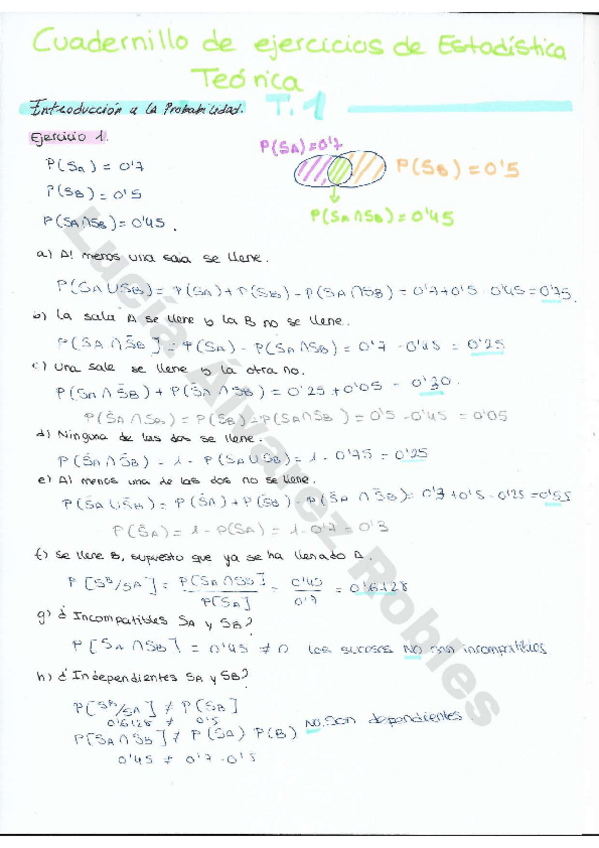 Cuadernillo de ejercicios de Estadística
Teórica
Introducción a la Probabilidad. T.1
Ejercicio 1.
P(SA) = 0'7
P(SB) = 0'5
P(SA∩SB) = 0'45.
P(SA) = 0'7
P(SB) = 0'5
P(SA∩SB) = 0'45
a) Al menos una sala se llene.
P(SA∪SB) = P(SA) + P(SB) - P(SA∩SB) = 0'7 + 0'5 - 0'45 = 0'75.
b) La sala A se llene y la B no se llene.
P(SA∩S̄B] = P(SA) - P(SA∩SB) = 0'7 - 0'45 = 0'25
c) Una sale se llene y la otra no.
P(SA∩S̄B) + P(S̄A∩SB) = 0'25 + 0'05 = 0'30.
P(S̄A∩SB) = P(SB) - P(SA∩SB) = 0'5 - 0'45 = 0'05
d) Ninguna de las dos se llene.
P(S̄A∩S̄B) = 1 - P(SA∪SB) = 1 - 0'75 = 0'25
e) Al menos una de las dos no se llene.
P(S̄A∪S̄B) = P(S̄A) + P(S̄B) - P(S̄A∩S̄B) = 0'3 + 0'5 - 0'25 = 0'55
P(S̄A) = 1 - P(SA) = 1 - 0'7 = 0'3
f) Se llene B, supuesto que ya se ha llenado A.
P[SB/SA] = P[SA∩SB] / P[SA] = 0'45 / 0'7 = 0'6128
g) ¿Incompatibles SA y SB?
P[SA∩SB] = 0'45 ≠ 0 Los sucesos NO son incompatibles
h) ¿Independientes SA y SB?
P[SB/SA] ≠ P[SB]
0'6128 ≠ 0'5
NO, Son dependientes.
P[SA∩SB] ≠ P(SA) P(B)
0'45 ≠ 0'7 · 0'5
Lucía Álvarez Robles